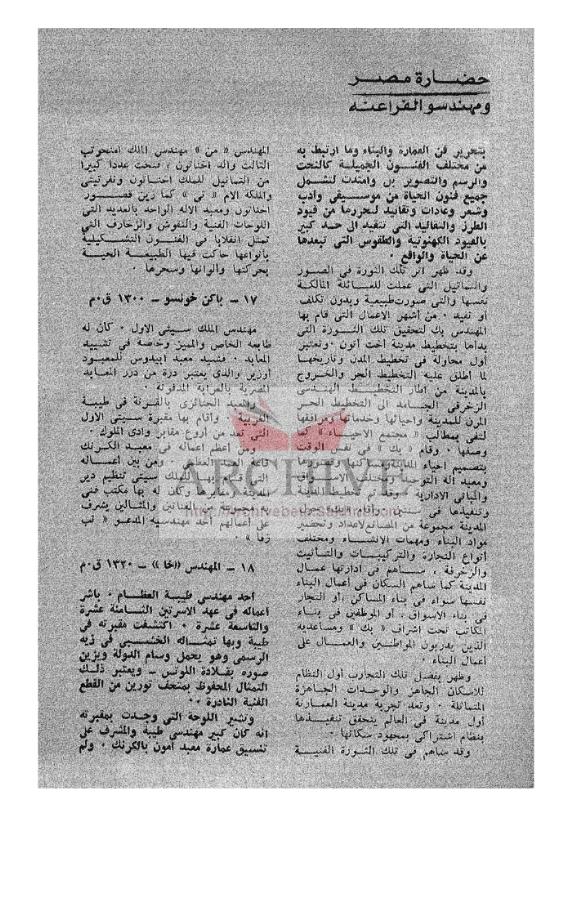 حضارة مصر
ومهندسو الفراعنة
بتحرير فن العمارة والبناء وما ارتبط به
من مختلف الفنون الجميلة كالنحت
والرسم والتصوير بل وامتدت لتشمل
جميع فنون الحياة من موسيقى وأدب
وشعر وعادات وتقاليد لتحررها من قيود
الطرز والتقاليد التى تتقيد الى حد كبير
بالقيود الكهنوتية والطقوس التى تبعدها
عن الحياة والواقع .
وقد ظهر أثر تلك الثورة فى الصور
والتماثيل التى عملت للعائلة المالكة
نفسها والتى صورت طبيعية وبدون تكلف
أو تقيد . من أشهر الأعمال التى قام بها
المهندس بك لتحقيق تلك الثورة التى
بدأها بتخطيط مدينة أخت أتون . وتعتبر
أول محاولة فى تخطيط المدن وتاريخها
لما أطلق عليه التخطيط الحر والخروج
بالمدينة من اطار التخطيط الهندسى
الزخرفى الجامد الى التخطيط الحر
المرن للمدينة وأحيائها وخدماتها ومرافقها
لتفى بمطالب « مجتمع الأحياء » كما
وصفها . وقام « بك » فى نفس الوقت
بتصميم أحياء المدينة
ومعبد اله التوحيد
والمبانى الادارية وقد تم تخطيط المدينة
وتنفيذها فى سنتين وأقام « بك » حول
المدينة مجموعة من المصانع لاعداد وتحضير
مواد البناء ومهمات الانشاء ومختلف
أنواع النجارة والتركيبات والتأثيث
والزخرفة ، ساهم فى ادارتها عمال
المدينة كما ساهم السكان فى أعمال البناء
نفسها سواء فى بناء المساكن ، أو التجار
فى بناء الأسواق ، أو الموظفين فى بناء
المكاتب تحت اشراف « بك » ومساعديه
الذين يدربون المواطنين والعمال على
أعمال البناء .
وظهر بفضل تلك التجارب أول النظام
للاسكان الجاهز والوحدات الجاهزة
المتماثلة . وتعد تجربة مدينة العمارنة
أول مدينة فى العالم يتحقق تنفيذها
بنظام اشتراكى بمجهود سكانها .
وقد ساهم فى تلك الثورة الفنية
المهندس « من » مهندس الملك امنحوتب
الثالث وابنه اخناتون ، نحت عددا كبيرا
من التماثيل للملك اخناتون ونفرتيتى
والملكة الأم « تى » كما زين قصور
اخناتون ومعبد الاله الواحد بالعديد التى
اللوحات الفنية والنقوش والزخارف التى
تمثل انقلابا فى الفنون التشكيلية
بأنواعها حاكت فيها الطبيعة الحية
بحركتها وألوانها وسحرها .
١٧ ــ باكن خونسو ــ ١٣٠٠ ق.م
مهندس الملك سيتى الأول . كان له
طابعه الخاص والمميز وخاصة فى تشييد
المعابد . فشيد معبد أبيدوس للمعبود
أوزير والذى يعتبر درة من درر المعابد
المصرية بالعرابة المدفونة .
وشيد الجنائزى بالقرنة فى طيبة
الغربية . وأقام بها مقبرة سيتى الأول
التى تعد من أروع مقابر وادى الملوك .
ومن أعظم أعماله فى معبد الكرنك
قاعة الأعمدة العظمى . ومن بين أعماله
التى الملك سيتى تنظيم دير
المدينة وكان له بها مكتب فنى
ومجموعة من الفنانين والمثالين يشرف
على أعمالهم أحد مهندسيه المدعو « تب
رفا » .
١٨ ــ المهندس «خا» ــ ١٣٢٠ ق.م
أحد مهندسى طيبة العظام . باشر
أعماله فى عهد الأسرتين الثامنة عشرة
والتاسعة عشرة . اكتشفت مقبرته فى
طيبة وبها تمثاله الخشبى فى زيه
الرسمى وهو يحمل وسام الدولة ويزين
صدره بقلادة اللوتس ــ ويعتبر ذلك
التمثال المحفوظ بمتحف تورين من القطع
الفنية النادرة .
وتشير اللوحة التى وجدت بمقبرته
أنه كان كبير مهندسى طيبة والمشرف على
تنسيق عمارة معبد آمون بالكرنك . ولم
ARCHIVE